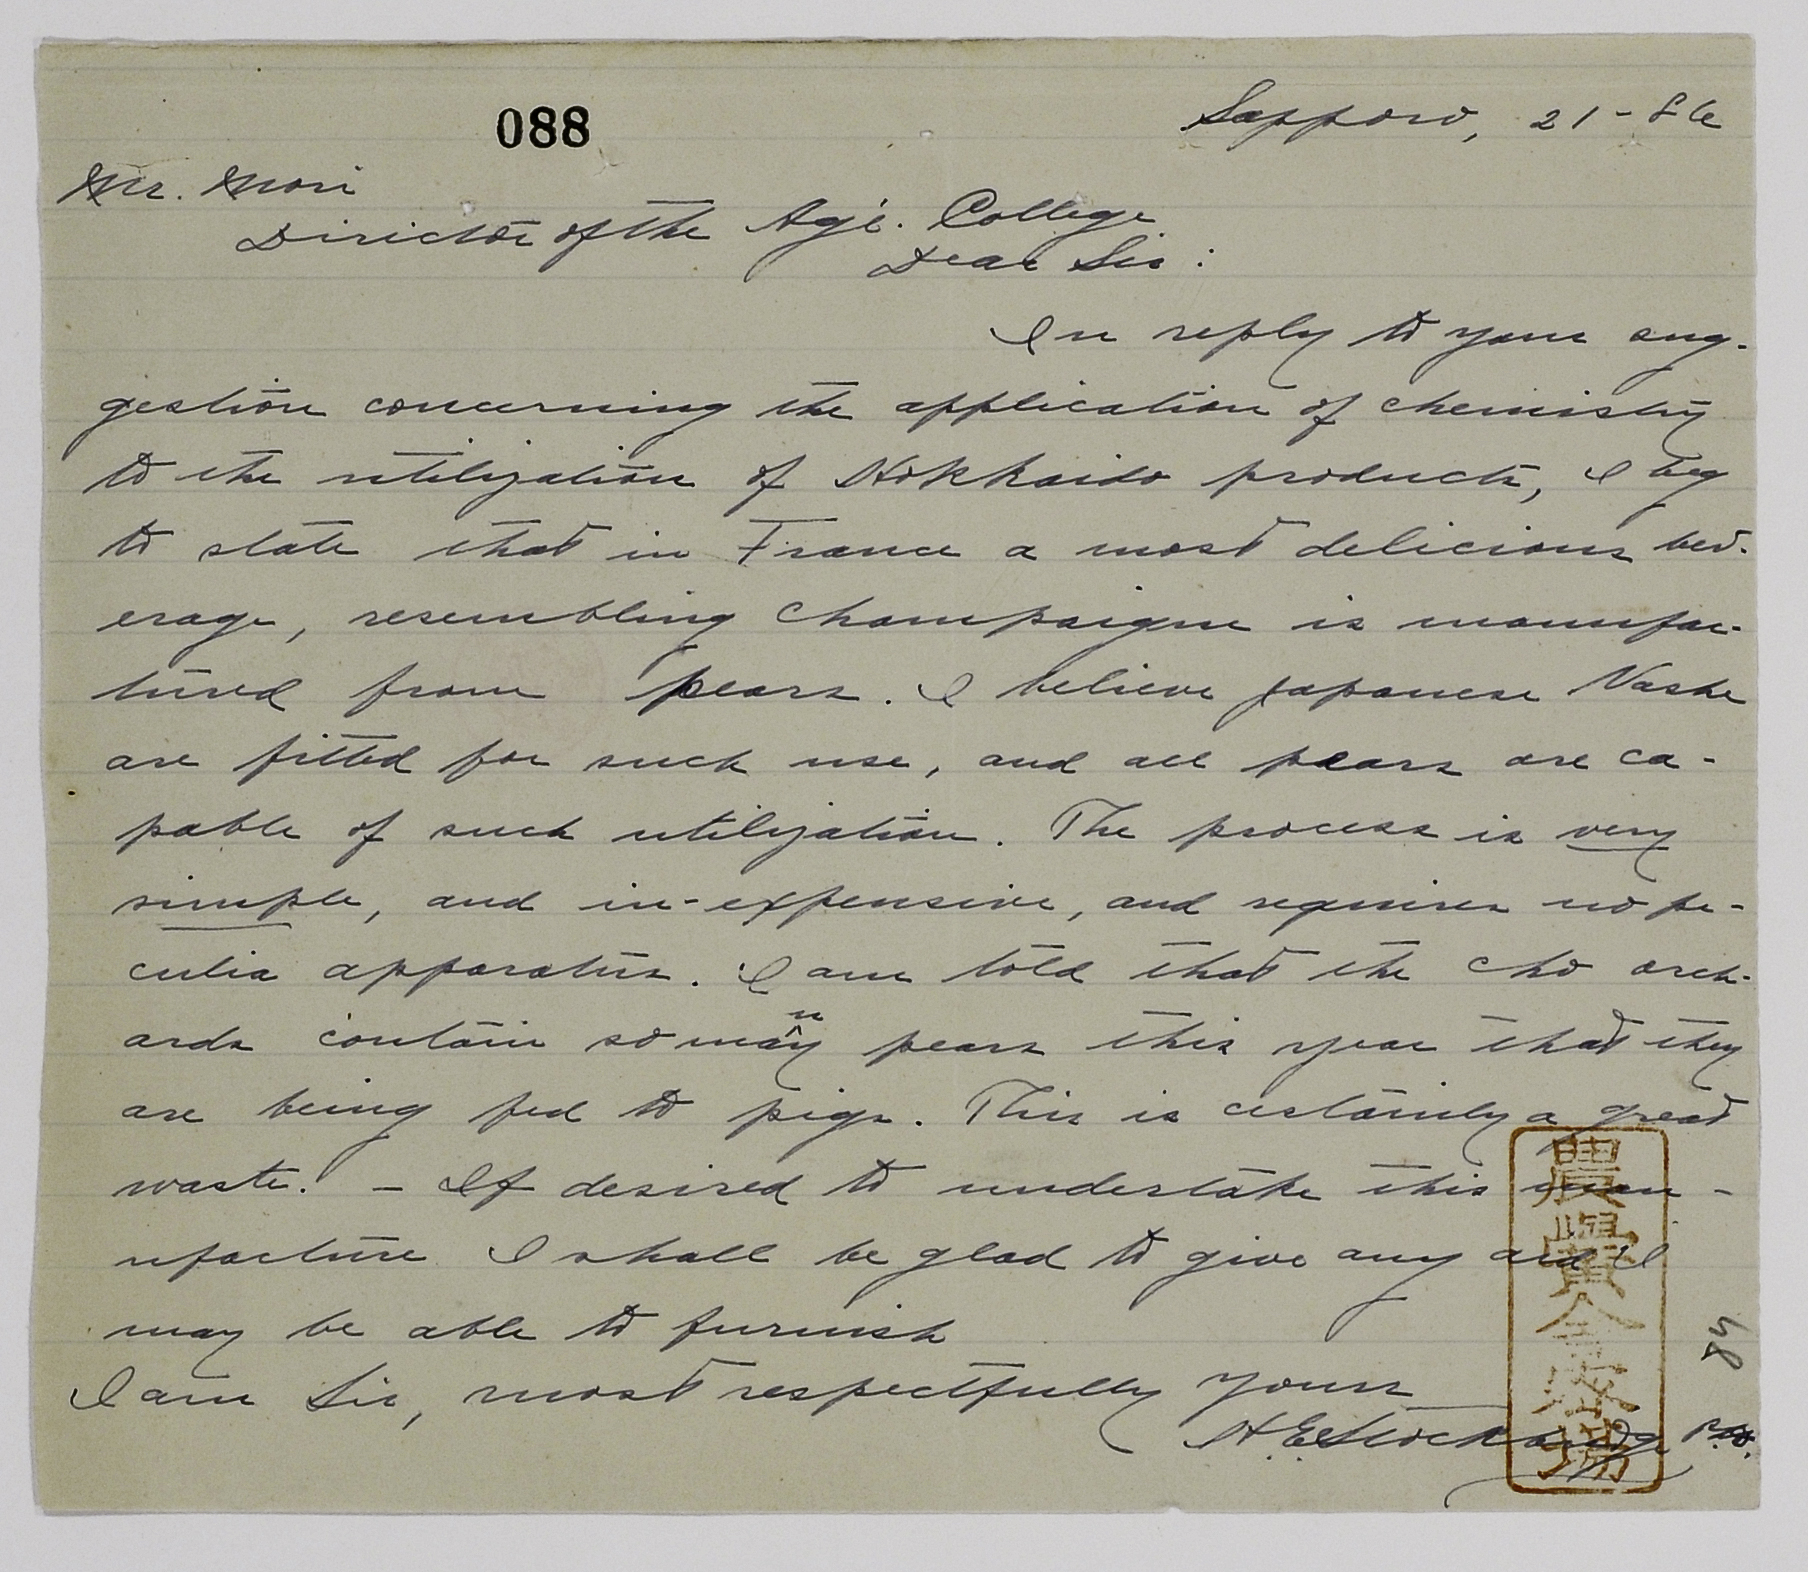 088
Sapporo, 21-86
Mr. Mori
Director of the Agr'l. College
Dear Sir:
In reply to your sug-
gestion concerning the application of chemistry
to the utilization of Hokkaido products, I beg
to state that in France a most delicious bev-
erage, resembling Champaigne is manufac-
tured from pears. I believe Japanese Nashe
are fitted for such use, and all pears are ca-
pable of such utilization. The process is very
simple, and in-expensive, and requires no pe-
culia apparatus. I am told that the Cho orch-
ards contain so many pears this year that they
are being fed to pigs. This is certainly a great
waste. – If desired to undertake this man-
ufacture I shall be glad to give any aid I
may be able to furnish
I am Sir, most respectfully yours
H.E. Stockbridge
農黌